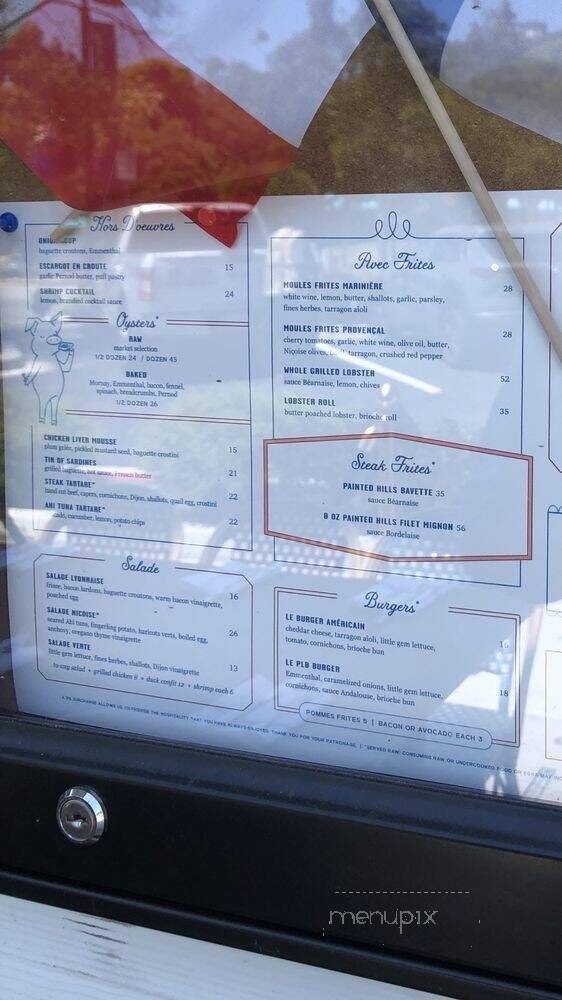 Hors D'oeuvres
baguette croutons, Emmenthal
ESCARGOT EN CROUTE 15
garlic Pernod butter, puff pastry
SHRIMP COCKTAIL 24
lemon, brandied cocktail sauce
Oysters*
RAW
market selection
1/2 DOZEN 24 / DOZEN 45
BAKED
Mornay, Emmenthal, bacon, fennel,
spinach, breadcrumbs, Pernod
1/2 DOZEN 26
CHICKEN LIVER MOUSSE 15
plum gelée, pickled mustard seed, baguette crostini
TIN OF SARDINES 21
grilled baguette, hot sauce, French butter
STEAK TARTARE* 22
hand cut beef, capers, cornichons, Dijon, shallots, quail egg, crostini
AHI TUNA TARTARE* 22
cucumber, lemon, potato chips
Salade
SALADE LYONNAISE 16
frisée, bacon lardons, baguette croutons, warm bacon vinaigrette,
poached egg
SALADE NICOISE* 26
seared Ahi tuna, fingerling potato, haricots verts, boiled egg,
anchovy, oregano thyme vinaigrette
SALADE VERTE 13
little gem lettuce, fines herbes, shallots, Dijon vinaigrette
to any salad + grilled chicken 8 + duck confit 12 + shrimp each 6
Avec Frites
MOULES FRITES MARINIÈRE 28
white wine, lemon, butter, shallots, garlic, parsley,
fines herbes, tarragon aioli
MOULES FRITES PROVENÇAL 28
cherry tomatoes, garlic, white wine, olive oil, butter,
Niçoise olives, tarragon, crushed red pepper
WHOLE GRILLED LOBSTER 52
sauce Béarnaise, lemon, chives
LOBSTER ROLL 35
butter poached lobster, brioche roll
Steak Frites*
PAINTED HILLS BAVETTE 35
sauce Béarnaise
8 OZ PAINTED HILLS FILET MIGNON 56
sauce Bordelaise
Burgers*
LE BURGER AMÉRICAIN
cheddar cheese, tarragon aioli, little gem lettuce,
tomato, cornichons, brioche bun
LE PLB BURGER 18
Emmenthal, caramelized onions, little gem lettuce,
cornichons, sauce Andalouse, brioche bun
POMMES FRITES 5 | BACON OR AVOCADO EACH 3
SURCHARGE ALLOWS US TO PROVIDE THE HOSPITALITY THAT YOU HAVE ALWAYS ENJOYED. THANK YOU FOR YOUR PATRONAGE. | *SERVED RAW. CONSUMING RAW OR UNDERCOOKED FOOD OR EGGS MAY
menupix